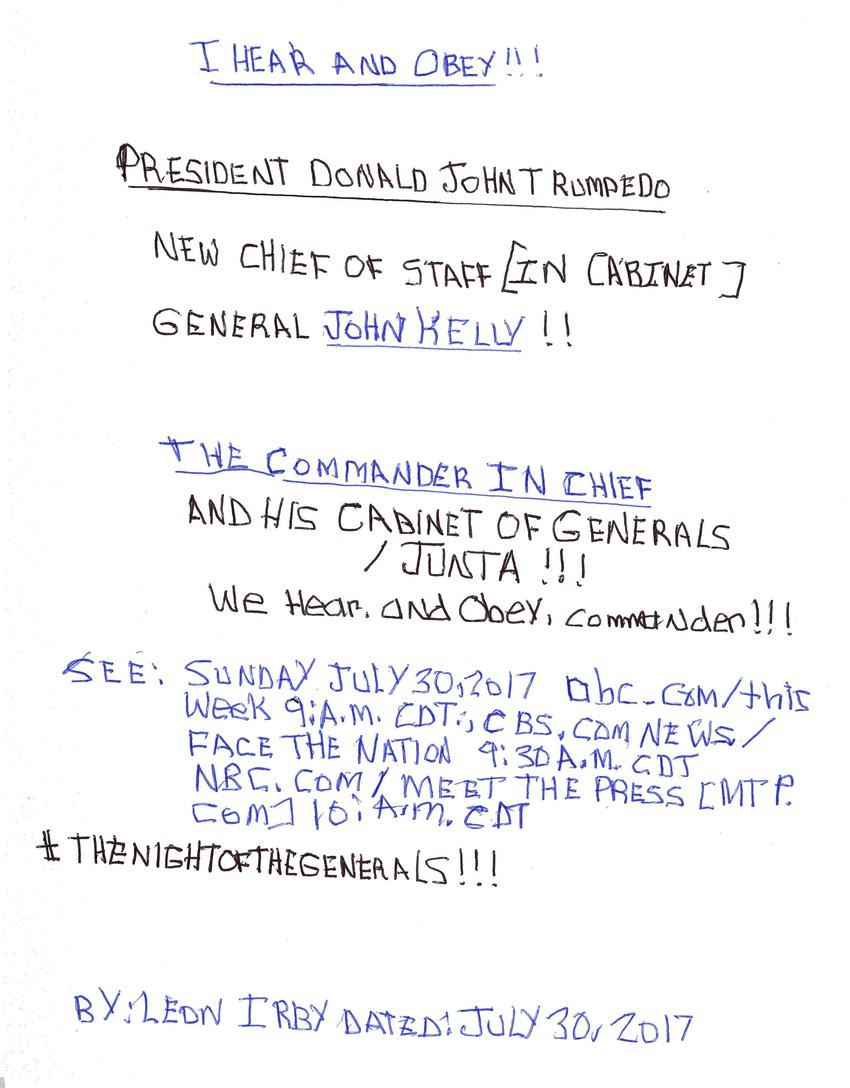 I HEAR AND OBEY!!!
PRESIDENT DONALD JOHN TRUMPEDO
NEW CHIEF OF STAFF [IN CABINET]
GENERAL JOHN KELLY !!
THE COMMANDER IN CHIEF
AND HIS CABINET OF GENERALS
/ JUNTA !!!
We Hear, and Obey, commander!!!
SEE: SUNDAY JULY 30, 2017 abc.com/this
Week 9:A.M. CDT., CBS.COM NEWS/
FACE THE NATION 9:30 A.M. CDT
NBC.COM/MEET THE PRESS [MTP.
COM] 10: A.M. CDT
#THENIGHTOFTHEGENERALS!!!
BY: LEON IRBY DATED: JULY 30, 2017